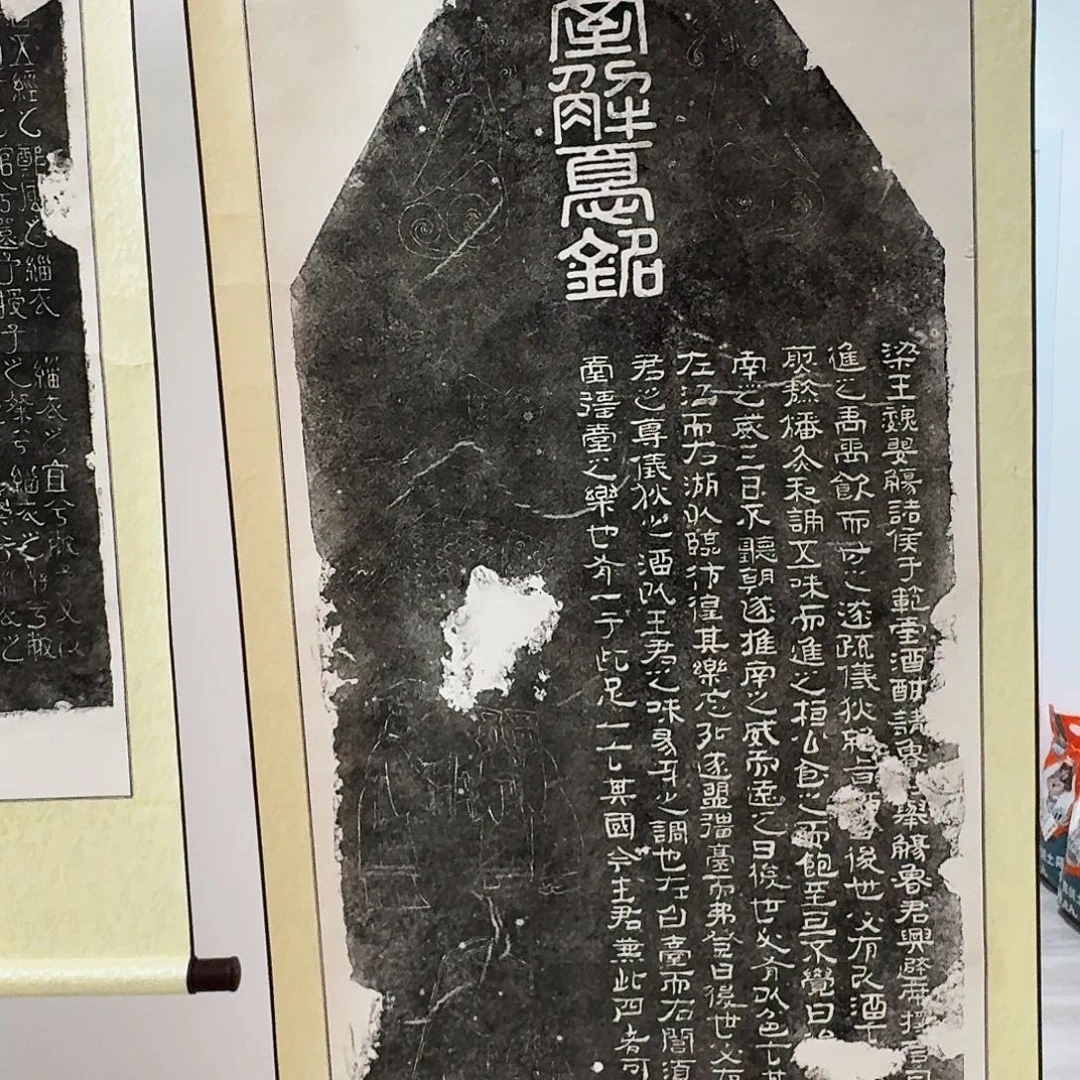 臺解惪銘
梁王魏嬰觴諸侯于範臺酒酣請魯舉觴魯君興避席擇言曰
進之禹禹飲而甘之遂疏儀狄絕旨後世必有以酒亡
煎熬燔炙和調五味而進之桓公食之而飽至旦不覺曰後
南之威三日不聽朝遂推南之威而遠之曰後世必有以色亡其
左江而右湖以臨彷徨其樂忘死遂盟彊臺而弗登曰後世必有
君之尊儀狄之酒也主君之味易牙之調也左白臺而右閭須
臺彊臺之樂也有一于此足以亡其國今主君兼此四者可
緇衣之宜兮敝予又改
五經之鄭風之緇衣
緇衣之好兮敝
館兮還予授子之粲兮